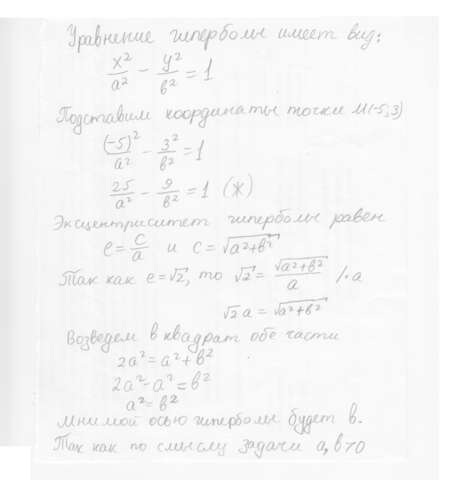 Уравнение гиперболы имеет вид:
x²/a² − y²/b² = 1
Подставим координаты точки M(-5;3)
(-5)²/a² − 3²/b² = 1
25/a² − 9/b² = 1 (Ж)
Эксцентриситет гиперболы равен
e = c/a и c = √(a²+b²)
Так как e = √2, то √2 = √(a²+b²)/a /·a
√2 a = √(a²+b²)
Возведем в квадрат обе части
2a² = a² + b²
2a² − a² = b²
a² = b²
Мнимой осью гиперболы будет b.
Так как по смыслу задачи a, b > 0